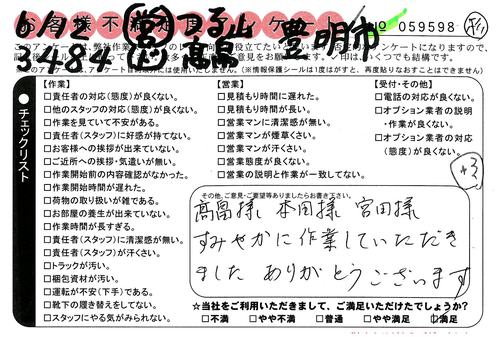 6/12 営 つる山 豊明市
3484 高畠
お客様不満足度アンケート
NO 059598
+3
チェックリスト
【作業】
□責任者の対応(態度)が良くない。
□他のスタッフの対応(態度)が良くない。
□作業を見ていて不安がある。
□責任者(スタッフ)に好感が持てない。
□お客様への挨拶が出来ていない。
□ご近所への挨拶・気遣いが無い。
□作業開始前の内容確認がなかった。
□作業開始時間が遅れた。
□荷物の取り扱いが雑である。
□お部屋の養生が出来ていない。
□作業時間が長すぎる。
□責任者(スタッフ)に清潔感が無い。
□責任者(スタッフ)が汗くさい。
□トラックが汚い。
□梱包資材が汚い。
□運転が不安(下手)である。
□靴下の履き替えをしてない。
□スタッフにやる気がみられない。
【営業】
□見積もり時間に遅れた。
□見積もり時間が長い。
□営業マンに清潔感が無い。
□営業マンが煙草くさい。
□営業マンが汗くさい。
□営業態度が良くない。
□営業の説明と作業が一致してない。
【受付・その他】
□電話の対応が良くない。
□オプション業者の説明
・作業が良くない。
□オプション業者の対応
(態度)が良くない。
その他、ご意見・ご要望等ありましたらお書き下さい。
高畠様 本田様 宮田様
すみやかに作業していただき
ました ありがとうございます
★当社をご利用いただきまして、ご満足いただけたでしょうか?
□不満 □やや不満 □普通 □やや満足 □満足